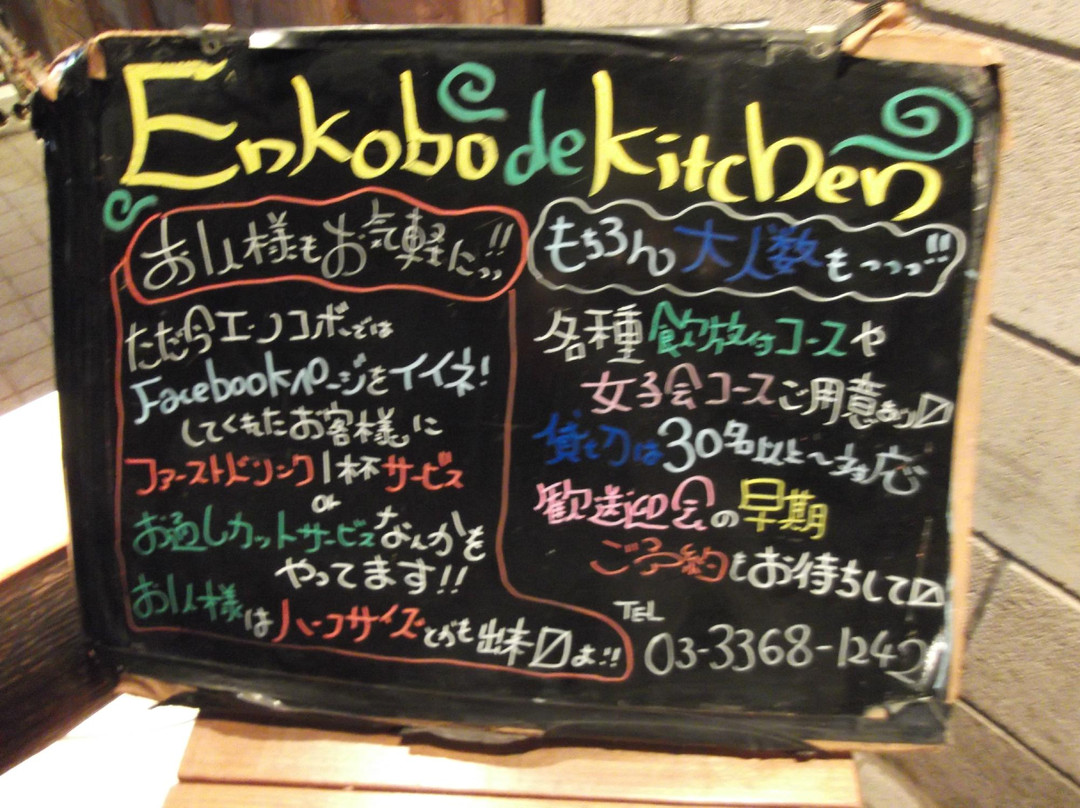 Enkobo de kitchen
お1人様もお気軽にっっ!!
ただ今エンコボーでは
Facebookページをイイネ!
してくれたお客様に
ファーストドリンク1杯サービス
or
お通しカットサービスなんかを
やってます!!
お1人様はハーフサイズとかも出来〼よ!!
もちろん大人数もっっっ!!
各種飲放付コースや
女子会コースご用意あり〼
貸切は30名以上〜対応
歓送迎会の早期
ご予約もお待ちして〼
TEL
03-3368-124